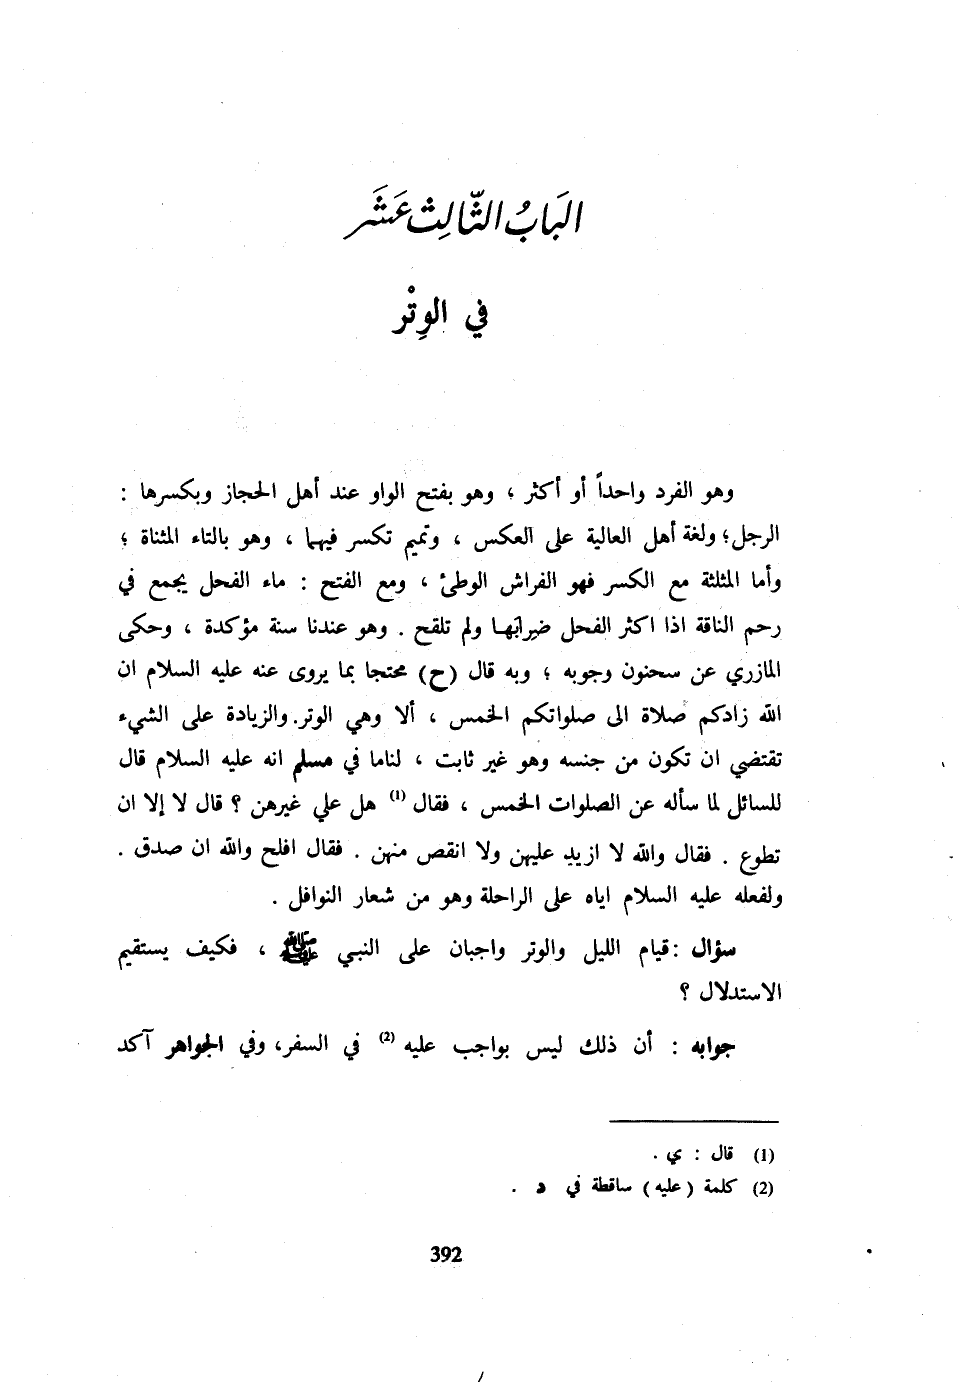 البَابُ الثَّالِث عَشَر
في الوِتْر
وهو الفرد واحداً أو أكثر ، وهو بفتح الواو عند أهل الحجاز وبكسرها :
الرجل؛ ولغة أهل العالية على العكس ، وتميم تكسر فيهما ، وهو بالتاء المثناة ؛
وأما المثلثة مع الكسر فهو الفراش الوطئ ، ومع الفتح : ماء الفحل يجمع في
رحم الناقة اذا اكثر الفحل ضرابَها ولم تلقح . وهو عندنا سنة مؤكدة ، وحكى
المازري عن سحنون وجوبه ؛ وبه قال (ح) محتجا بما يروى عنه عليه السلام ان
الله زادكم صلاة الى صلواتكم الخمس ، ألا وهي الوتر. والزيادة على الشيء
تقتضي ان تكون من جنسه وهو غير ثابت ، لناما في مسلم انه عليه السلام قال
للسائل لما سأله عن الصلوات الخمس ، فقال (1) هل علي غيرهن ؟ قال لا إلا ان
تطوع . فقال والله لا ازيد عليهن ولا انقص منهن . فقال افلح والله ان صدق .
ولفعله عليه السلام اياه على الراحلة وهو من شعار النوافل .
سؤال : قيام الليل والوتر واجبان على النبي ﷺ ، فكيف يستقيم
الاستدلال ؟
جوابه : أن ذلك ليس بواجب عليه (2) في السفر، وفي الجواهر آكد
(1) قال : ي .
(2) كلمة (عليه) ساقطة في د .
392